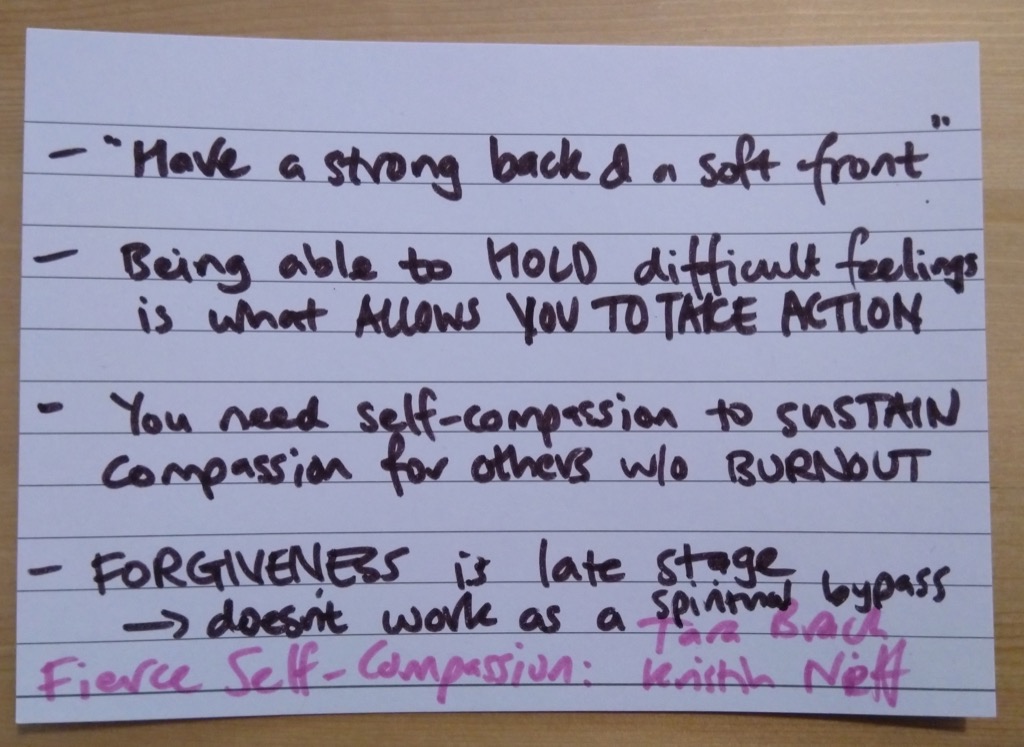 - "Have a strong back & a soft front"
- Being able to HOLD difficult feelings
is what ALLOWS YOU TO TAKE ACTION
- You need self-compassion to SUSTAIN
compassion for others w/o BURNOUT
- FORGIVENESS is late stage
→ doesn't work as a spiritual bypass
Tara Brach
Fierce Self-Compassion: Kristin Neff